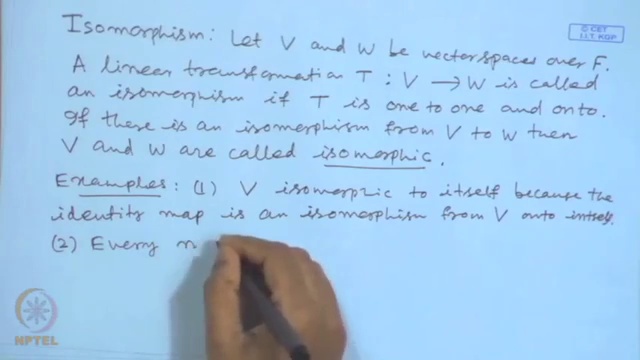 © CET
I.I.T. KGP
Isomorphism: Let V and W be vector spaces over F.
A linear transformation T : V → W is called
an isomorphism if T is one to one and onto.
If there is an isomorphism from V to W then
V and W are called isomorphic.
Examples: (1) V isomorphic to itself because the
identity map is an isomorphism from V onto intself.
(2) Every n
NPTEL